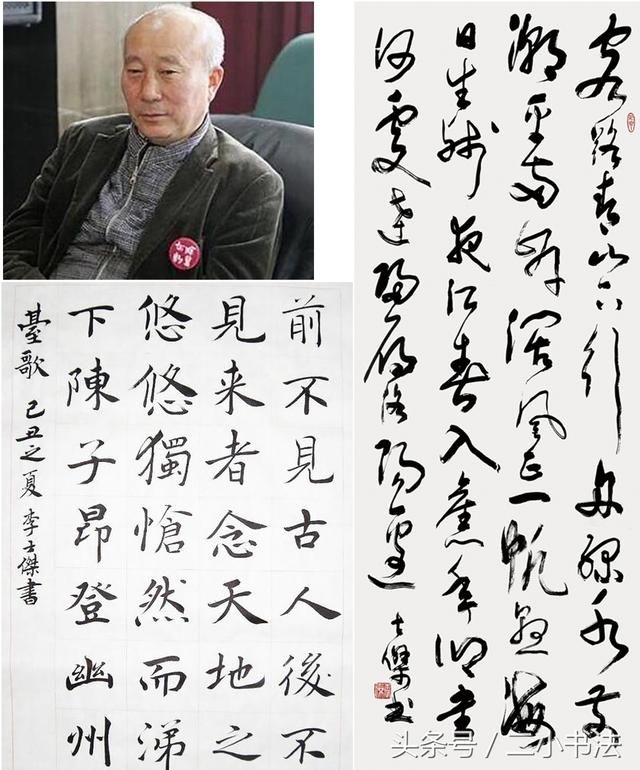 前不見古人後不
見来者念天地之
悠悠獨愴然而涕
下陳子昂登幽州
臺歌 己丑之夏 李士傑書
客路青山下行舟綠水前
潮平兩岸闊風正一帆懸海
日生殘夜江春入舊年鄉書
何處達歸雁洛陽邊 士傑书
头条号 / 二小书法